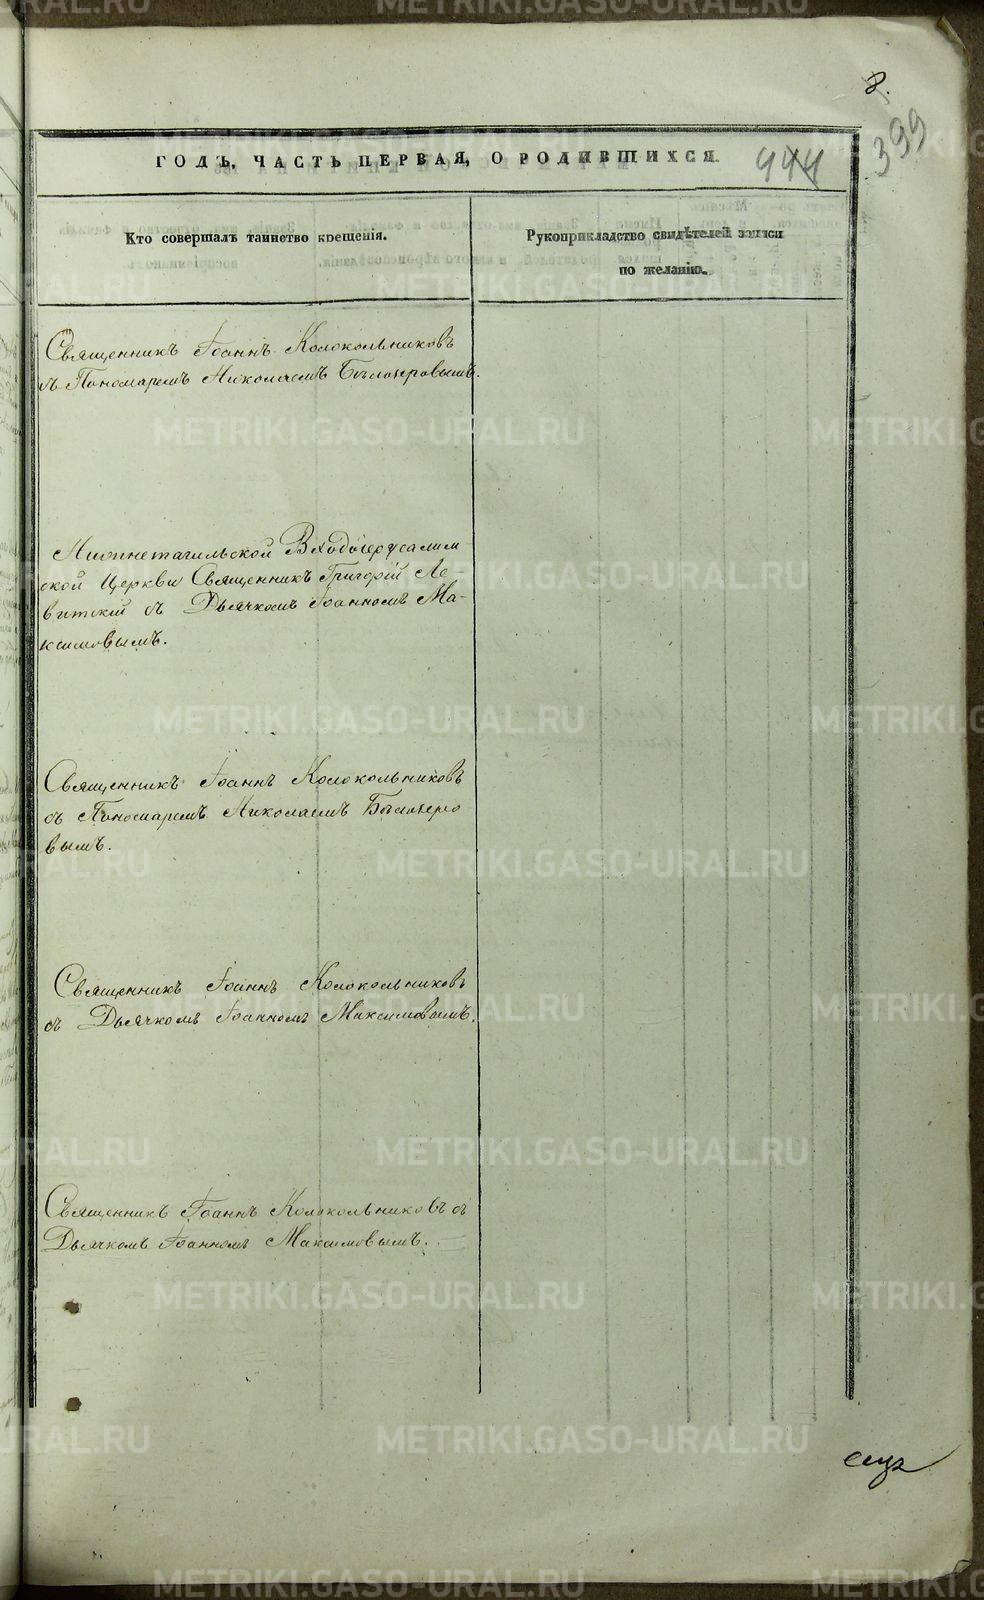 8.
399
ГОДЪ, ЧАСТЬ ПЕРВАЯ, О РОДИВШИХСЯ.
444
Кто совершалъ таинство крещенія.
Рукоприкладство свидѣтелей записи
по желанію.
Священникъ Іоаннъ Колокольниковъ
съ Пономаремъ Николаемъ Бѣлозеровымъ.
Нижнетагильской Входоіерусалим
ской Церкви Священникъ Григорій Ле-
витскій съ Дьячкомъ Іоанномъ Ма-
ксимовымъ.
Священникъ Іоаннъ Колокольниковъ
съ Пономаремъ Николаемъ Бѣлозеро
вымъ.
Священникъ Іоаннъ Колокольниковъ
съ Дьячкомъ Іоанномъ Максимовымъ.
Священникъ Іоаннъ Колокольниковъ съ
Дьячкомъ Іоанномъ Максимовымъ.
METRIKI.GASO-URAL.RU